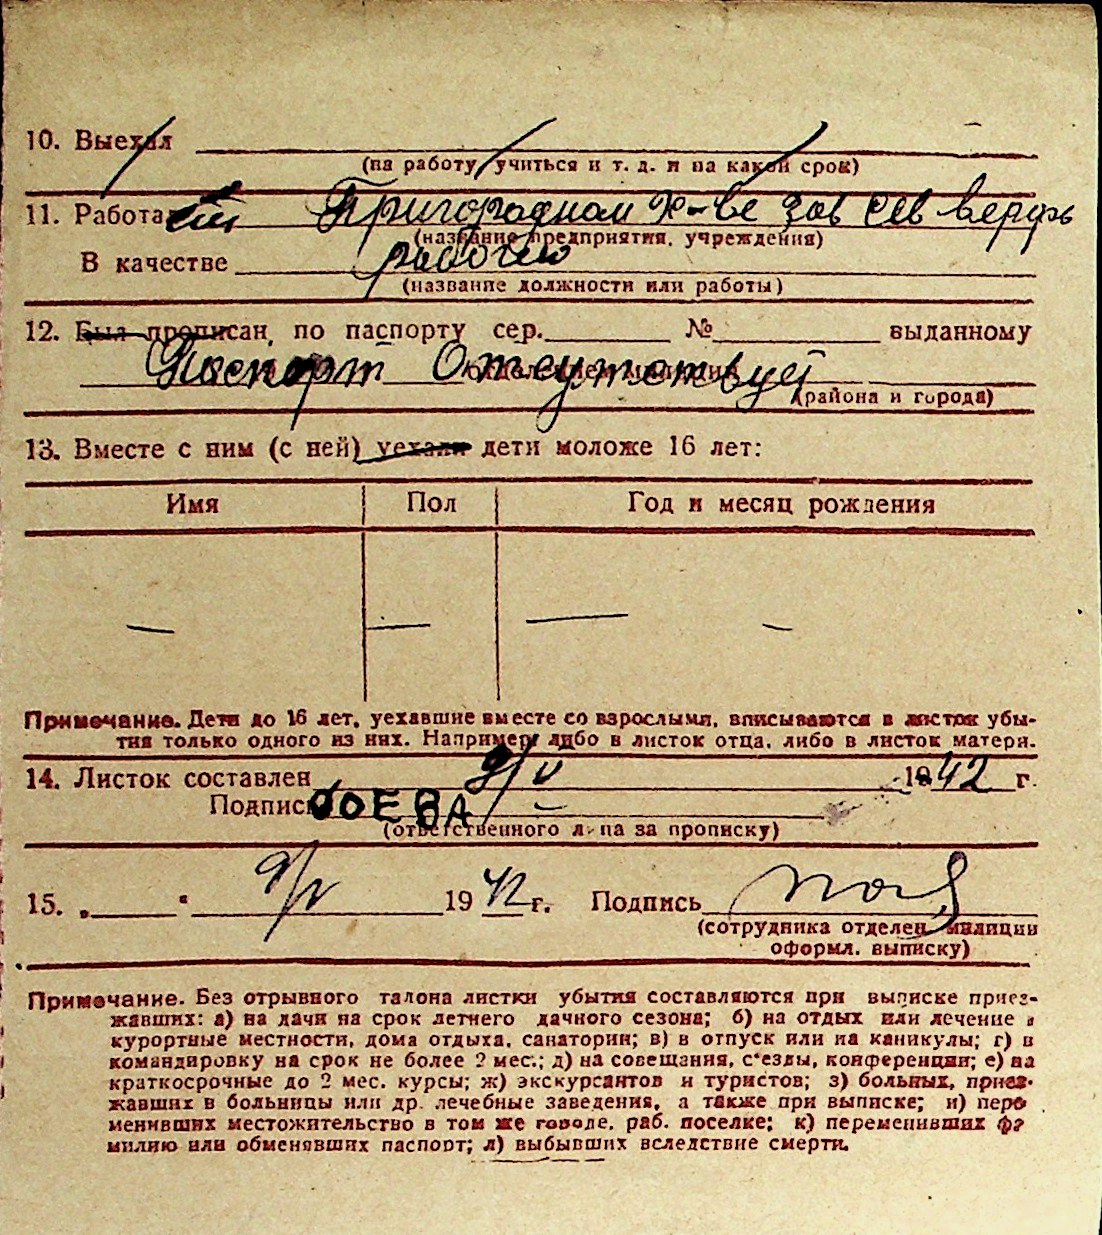 10. Выехал
(на работу учиться и т. д. и на какой срок)
11. Работал Пригородном х-ве зав сев верфь
(название предприятия, учреждения)
В качестве рабочию
(название должности или работы)
12. Был прописан, по паспорту сер. № выданному
Паспорт Отсутствует
отделением милиции
(района и города)
13. Вместе с ним (с ней) уехали дети моложе 16 лет:
Имя Пол Год и месяц рождения
— — — —
Примечание. Дети до 16 лет, уехавшие вместе со взрослыми, вписываются в листок убы-
тия только одного из них. Например: либо в листок отца, либо в листок матери.
14. Листок составлен 9/V 1942 г.
Подпись БОЕВА
(ответственного лица за прописку)
15. „ “ 9/V 1942 г. Подпись
(сотрудника отделен. милиции
оформл. выписку)
Примечание. Без отрывного талона листки убытия составляются при выписке приез-
жавших: а) на дачи на срок летнего дачного сезона; б) на отдых или лечение в
курортные местности, дома отдыха, санатории; в) в отпуск или на каникулы; г) в
командировку на срок не более 2 мес.; д) на совещания, с'езды, конференции; е) на
краткосрочные до 2 мес. курсы; ж) экскурсантов и туристов; з) больных, приез-
жавших в больницы или др. лечебные заведения, а также при выписке; и) пере
менивших местожительство в том же городе, раб. поселке; к) переменивших фа
милию или обменявших паспорт; л) выбывших вследствие смерти.